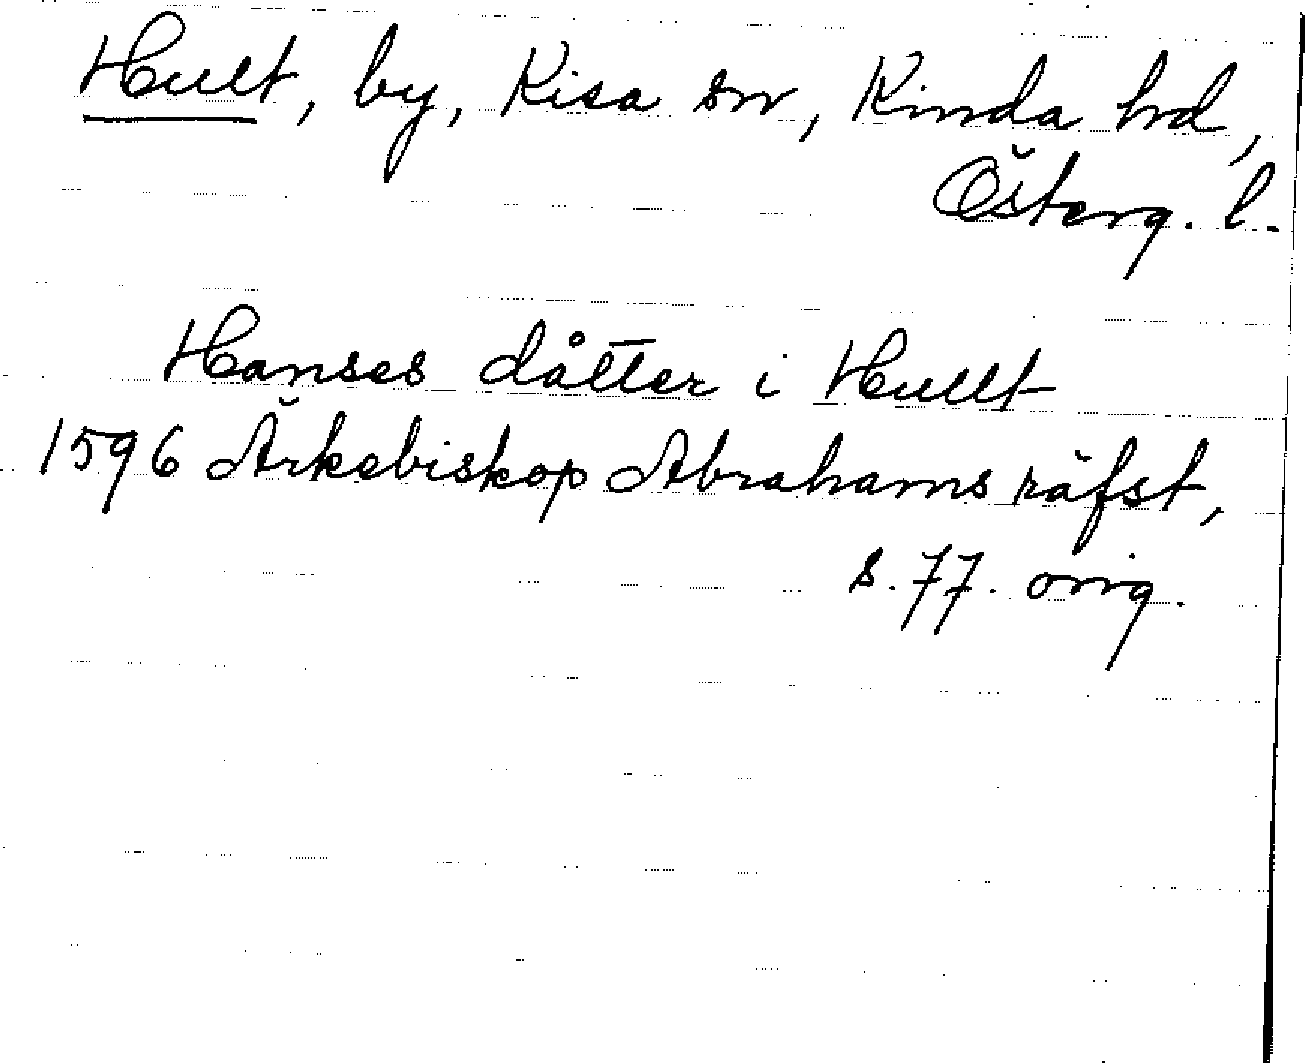 Hult, by, Kisa sn, Kinda hd,
Österg. l.
Hanses dåtter i Hullt
1596 Ärkebiskop Abrahams räfst,
s. 77. orig.